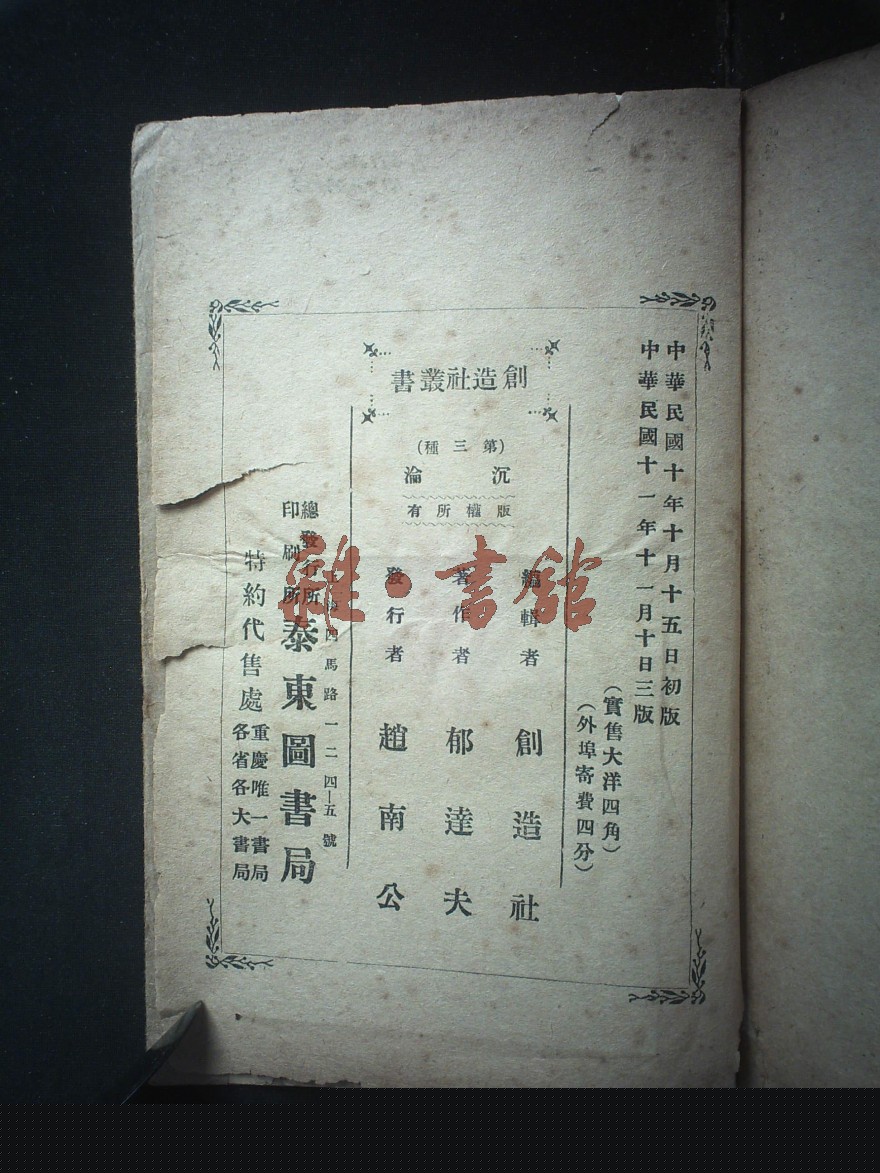 中華民國十年十月十五日初版
中華民國十一年十一月十日三版
（實售大洋四角）
（外埠寄費四分）
創造社叢書
（第三種）
沉淪
版權所有
編輯者 創造社
著作者 郁達夫
發行者 趙南公
四馬路一二四—五號
總發行所
印刷所
泰東圖書局
特約代售處
重慶唯一書局
各省各大書局
雜·書館